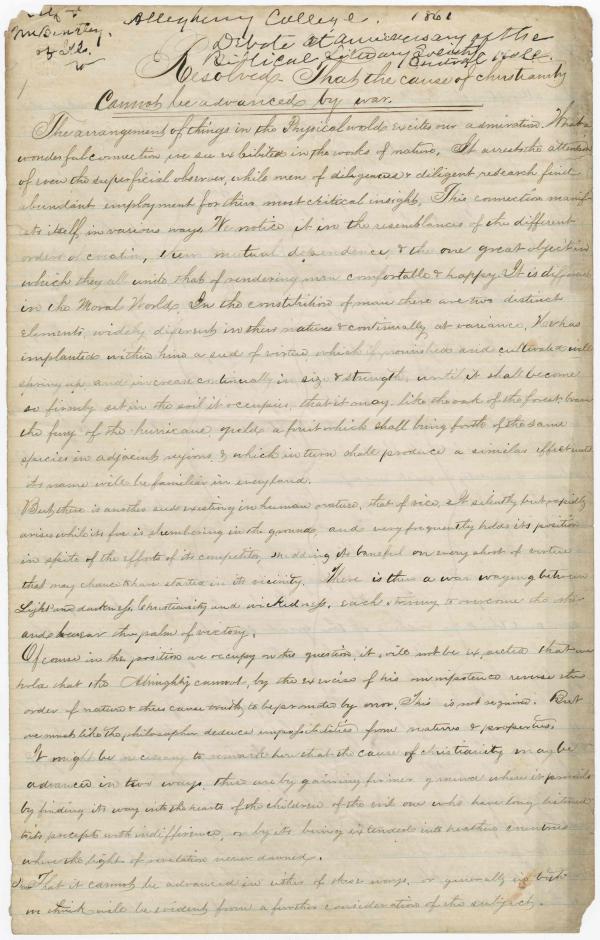 Allegheny College. 1861
McBentley
Debate at anniversary of the
Biblical Literary Society
Resolved That the cause of christianity
Cannot be advanced by war.
The arrangement of things in the Physical world excites our admiration. What a
wonderful connection we see exhibited in the works of nature. It arrests the attention
of even the superficial observer, while men of diligent research find
abundant employment for their most critical insight. This connection manif-
ests itself in various ways We notice it in the resemblances of the different
orders of creation, their mutual dependence, & the one great object in
which they all unite, that of rendering man comfortable & happy. It is different
in the Moral World. In the constitution of man there are two distinct
elements, widely diferent in their natures & continually at variance.
implanted within him a seed of virtue which if nourished and cultivated will
spring up and increase continually in size & strength, until it shall become
so firmly set in the soil it occupies, that it may like the oak of the forest brave
the fury of the hurricane yield a fruit which shall bring forth of the same
species in adjacent regions & which in turn shall produce a similar effect until
its name will be familiar in every land.
But there is another seed existing in human nature, that of vice. It silently but rapidly
arises while its foe is slumbering in the ground, and very frequently holds its position
in spite of the efforts of its competitor, shedding its baneful on every shoot of virtue
that may chance to have started in its vicinity. There is thus a war waging between
Light and darkness, Christianity and wickedness, each striving to overcome the other
and bear the palm of victory.
Of course in the position we occupy on the question, it will not be expected that we
hold that the Almighty cannot, by the exercise of his omnipotence reverse the
order of nature & thus cause truth to be promoted by error. This is not required. But
we must like the philosopher deduce impossibilities from natures & properties.
It might be necessary to remark here that the cause of christianity may be
advanced in two ways, there are by gaining firmer ground where it prevails
by finding its way into the hearts of the children of the evil one who have long listened
to its precepts with indifference, or by its being extended into heathen countries
where the light of revelation never dawned.
That it cannot be advanced in either of these ways, or generally in both
we think will be evident from a further consideration of the subject.